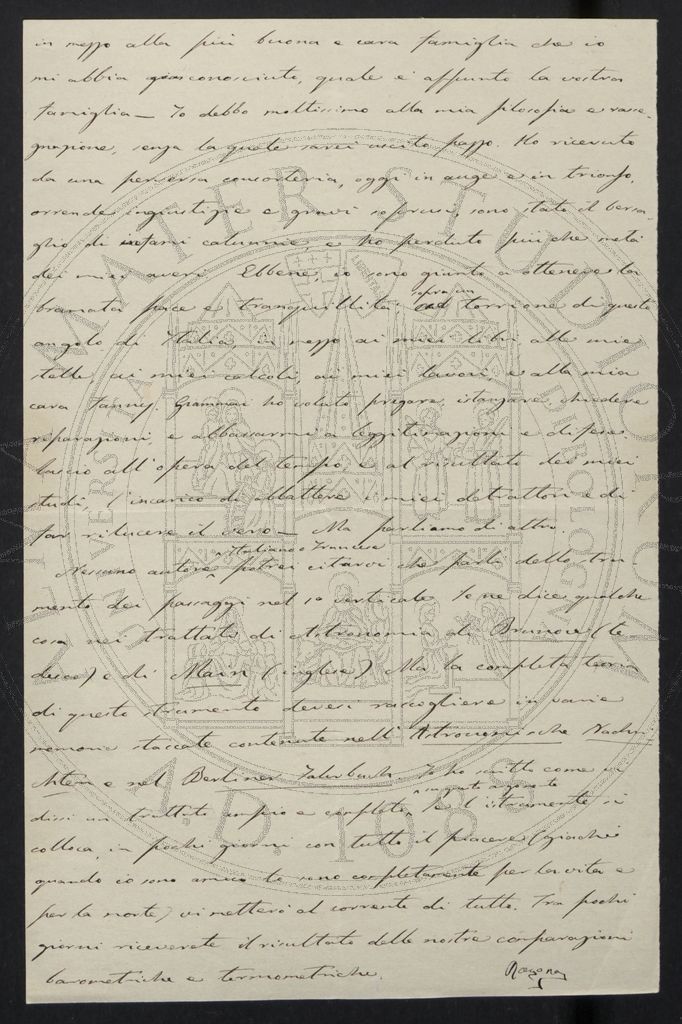 in mezzo alla più buona e cara famiglia che io
mi abbia conosciuto, quale è appunto la vostra
famiglia — Io debbo moltissimo alla mia filosofia e rasse-
gnazione, senza la quale sarei uscito pazzo. Ho ricevuto
da una perversa consorteria, oggi in auge e in trionfo,
orrende ingiustizie e gravi soprusi, sono stato il bersa-
glio di infami calunnie e ho perduto più che metà
dei miei averi. Ebbene, io sono giunto a ottenere la
bramata pace e tranquillità, sopra un torrione di questo
angolo di Italia, in mezzo ai miei libri, alle mie
stelle, ai miei calcoli, ai miei lavori, e alla mia
cara Fanny. Giammai ho voluto pregare, istanzare, chiedere
riparazioni, e abbassarmi a legittimazioni e difese.
Lascio all'opera del tempo, e al risultato dei miei
studi, l'incarico di abbattere i miei detrattori e di
far rilucere il vero — Ma parliamo di altro.
Nessuno autore Italiano o Francese potrei citarvi che parli dello stru-
mento dei passaggi nel 1o verticale. Se ne dice qualche
cosa nei trattati di Astronomia di Brunow (te
desco) e di Main (inglese) Ma la completa teoria
di questo strumento dovrei raccogliere in varie
memorie staccate contenute nell'Astronomische Nachri
chten e nel Berliner Jahrbuch. Io ho scritto come vi
dissi un trattato ampio e completo su questo argomento. Se l'istrumento si
colloca, in pochi giorni con tutto il piacere (giacchè
quando io sono amico lo sono completamente per la vita e
per la morte) vi metterò al corrente di tutto. Tra pochi
giorni riceverete il risultato delle nostre comparazioni
barometriche e termometriche.
Ragona
ALMA MATER STUDIORUM
A.D. 1088